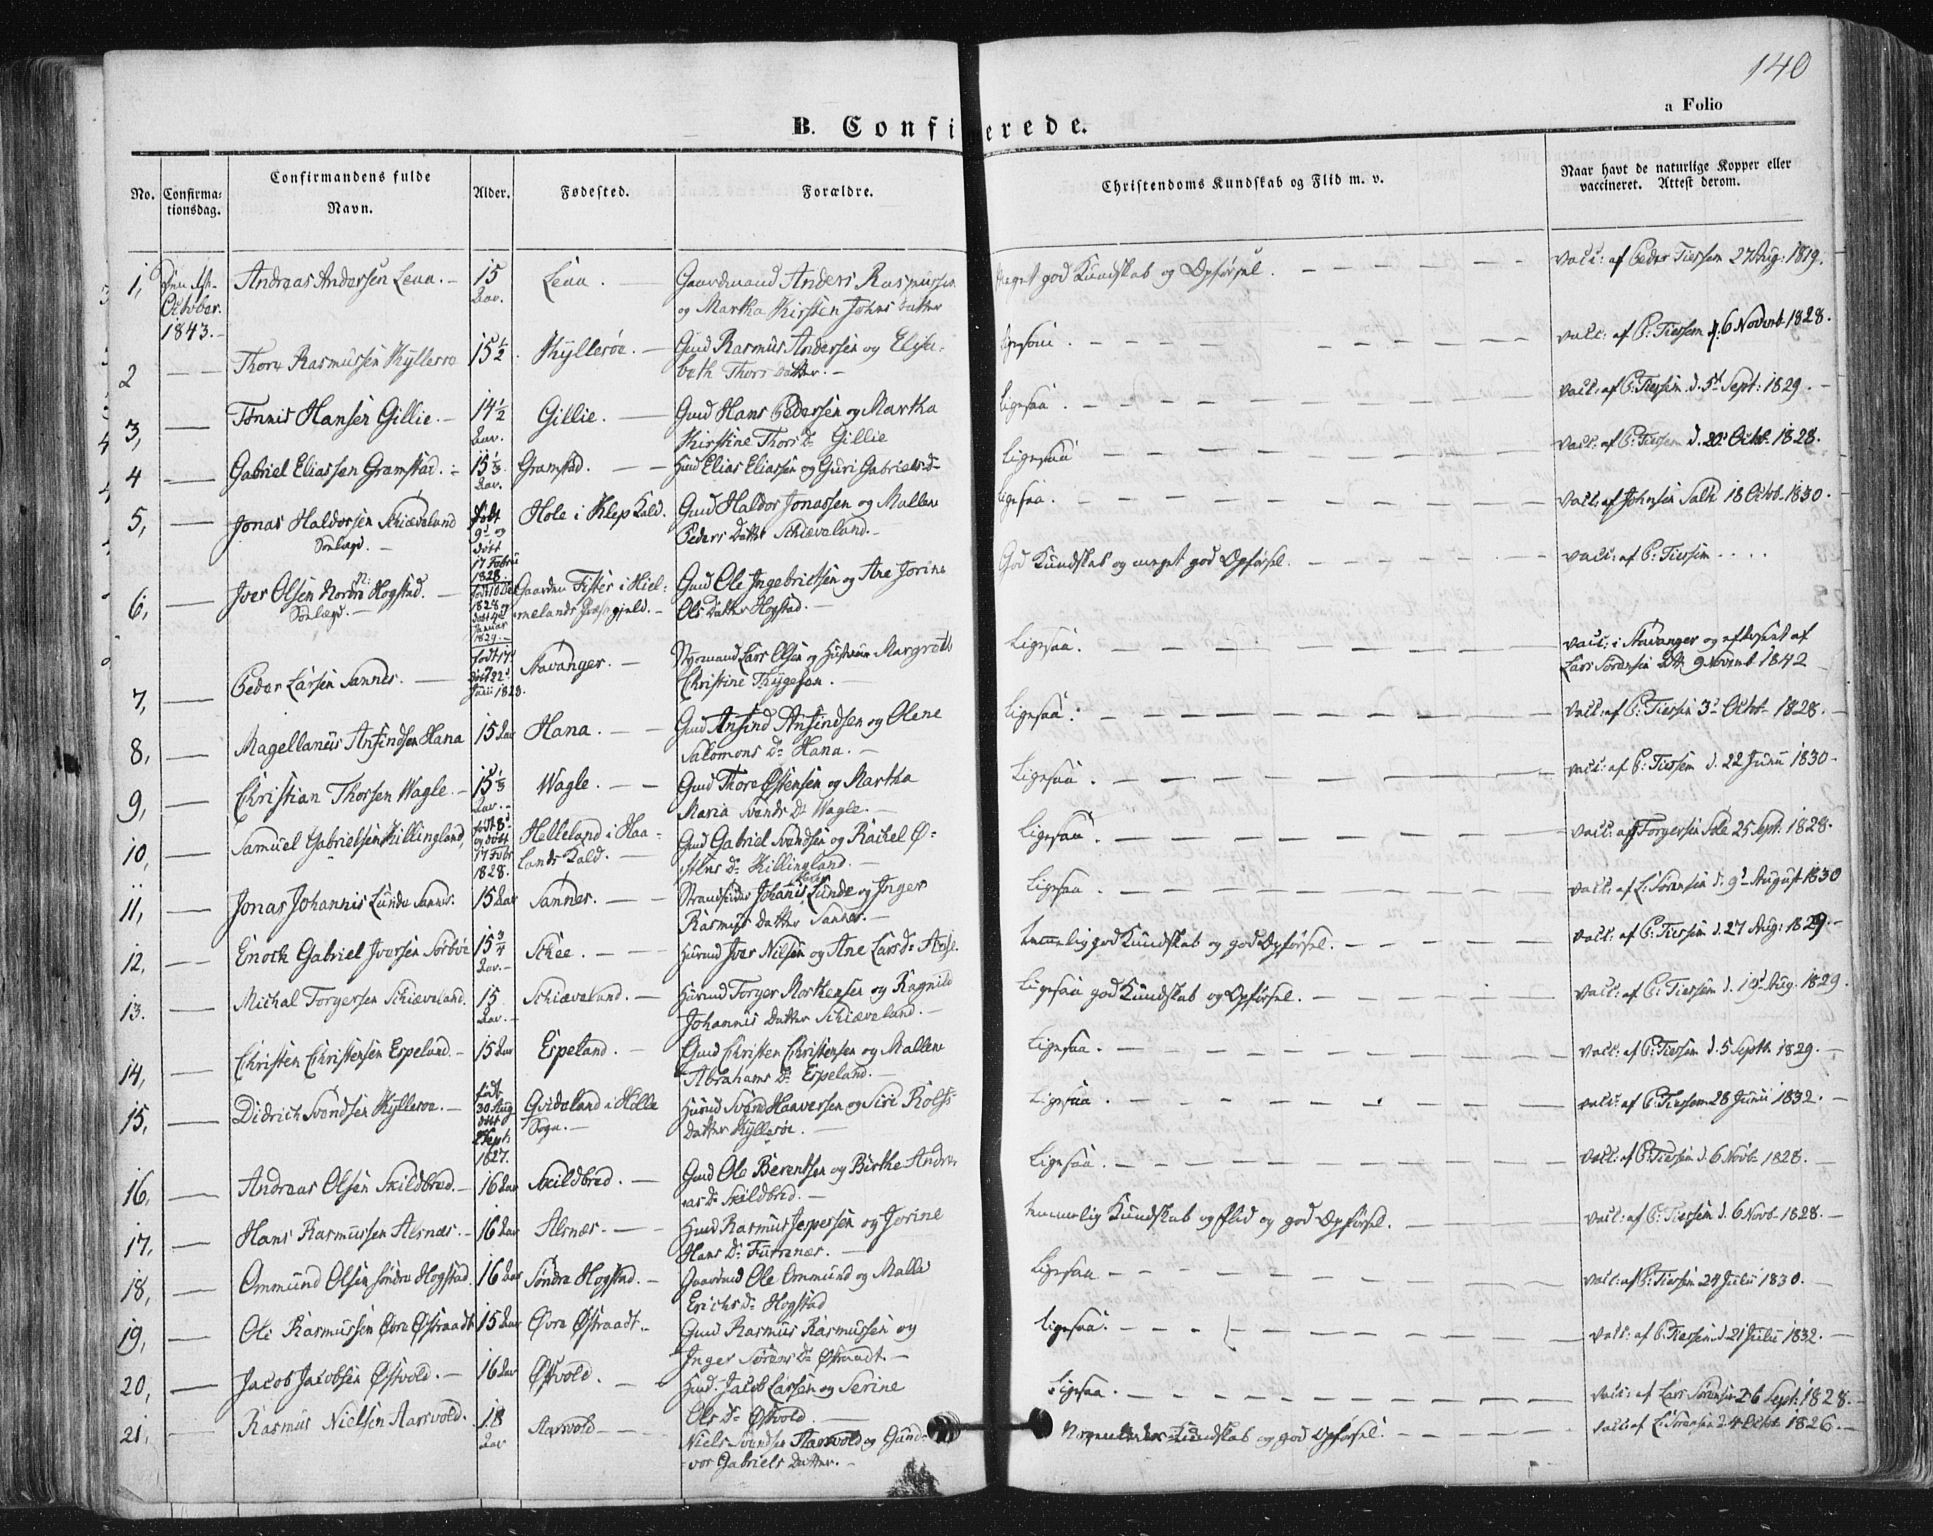 140
a Folio
B. Confirmerede.
No.
Confirma-
tionsdag.
Confirmandens fulde
Navn.
Alder.
Fødested.
Forældre.
Christendoms Kundskab og Flid m. v.
Naar havt de naturlige Kopper eller
vaccineret. Attest derom.
1, October 1843. Andreas Andersen Lena. 15 Aar. Lena. Gaardmand Anders Rasmussen
og Martha Kirsten Johns Datter
Meget god Kundskab og Opførsel. vacc: af Peder Tiersen 27 Aug: 1819.
2 Thore Rasmussen Kyllesøe 15½. Kyllesøe. Gmd Rasmus Andersen og Elisa-
beth Thors Datter.
ligesaa. vacc: af P: Tiersen d. 6 Novemb 1828.
3, Tønnis Hansen Gillie. 14½ Aar. Gillie. Gmd Hans Pedersen og Martha
Kirstine Thors D. Gillie
ligesaa. vacc: af P: Tiersen d. 5t Sept: 1829.
4 Gabriel Eliassen Gramstad. 15⅓ Aar. Gramstad. Hmd Elias Eliassen og Guri Gabriels D.
Ligesaa vacc: af P: Tiersen d. 20 Octb. 1828.
5, Jonas Haldorsen Schiæveland
født 9d og døbt 17 Februi 1828. Hole i Klep Kald. Gmd Haldor Jonassen og Mallene
Peders Datter Schiæveland.
ligesaa. vacc: af Johnsen 18 Octb. 1830.
6, Iver Olsen Nordre Hogstad.
født 10 Dec 1828 og døbt 4d Januar 1829. Gaarden Fister i Hiel-
melands Præstgjeld. Gmd Ole Ingebrictsen og Ane Jorine
Ols Datter Hogstad.
God Kundskab og meget god Opførsel. vacc: af P: Tiersen . . . .
7, Peder Larsen Sannes. født døbt 22 Junii 1828. Stavanger. Styrmand Lars Olsen og Hustrue Margrethe
Christine Thygesen.
Ligesaa. vacc: i Stavanger og af
Lars Sørensen 9 Novemb 1842
8, Magellaneus Ansindsen Hana 15 Aar Hana. Gmd Ansind Ansindsen og Olene
Salomons D. Hana.
Ligesaa. vacc: af P: Tiersen 3d Octb. 1828.
9, Christian Thorsen Wagle. 15⅓ Aar. Wagle. Gmd Thore Østensen og Martha
Maria Svends D. Wagle.
Ligesaa. vacc: af P: Tiersen d. 22 Junii 1830.
10, Samuel Gabrielsen Killingland, født 8d og døbt 17 Febr 1828. Helleland i Haa-
lands Kald. Gmd Gabriel Svendsen og Rachel Ø-
stens D. Killingland.
Ligesaa. vacc: af Torgersen Sole 25 Sept: 1828.
11, Jonas Johannis Lunde Sannes. 15 Aar Sannes. Strandsidder Johanis Lunde og Inger
Rasmus Datter Sannes.
Ligesaa. vacc. af L: Sørensen d. 9d August 1830
12, Enock Gabriel Iversen Sørbøe 15¾ Aar. Skee. Huusmd Iver Nilsen og Ane Lars D.
temmelig god Kundskab og god Opførsel. vacc. af P: Tiersen d. 27 Aug: 1829.
13. Michal Torgersen Schiæveland. 15 Aar. Schiæveland. Huusmd Torger Morthensen og Ragnild
Johannis Datter Schiæveland.
Ligesaa god Kundskab og Opførsel. vacc: af P: Tiersen d. 19d Aug. 1829.
14, Christen Christensen Espeland. 15 Aar Espeland. Gmd Christen Christensen og Mallene
Abrahams D. Espeland.
Ligesaa. vacc: af P: Tiersen d. 5 Septb 1829.
15, Didrich Svendsen Kyllesøe. født 30 Aug døbt 2 Sept: 1827. Gvideland i Hølle
Sogn. Huusmd Svend Haaversen og Siri Rolfs
Datter Kyllesøe.
Ligesaa. vacc: af P: Tiersen 28 Junii 1832.
16, Andreas Olsen Skildbred. 16 Aar Skildbred. Gmd Ole Berentsen og Birthe Andre-
as D. Skildbred.
Ligesaa. vacc: af P: Tiersen d. 6 Novb 1828.
17, Hans Rasmussen Alsnæs. 16 Aar Alsnæs. Huusmd Rasmus Jespersen og Jorine
Hans D. Furrenæs.
temmelig Kundskab og Flid og god Opførsel. vacc: af P: Tiersen d. 6 Novb. 1828.
18, Ommund Olsen søndre Hogstad. 16 Aar Søndre Hogstad. Gaardmd Ole Ommund og Malle
Erichs D. Hogstad
Ligesaa vacc: af P: Tiersen 24 Julii 1830.
19, Ole Rasmussen Øvre Østraadt 15 Aar Øvre Østraadt. Gmd Rasmus Rasmussen og
Inger Sørens D. Østraadt.
ligesaa. vacc: af P: Tiersen d. 21 Julii 1832.
20, Jacob Jacobsen Østvold. 16 Aar Østvold. Hmd. Jacob Larsen og Serine
Ols D. Østvold.
Ligesaa. vacc: af Lars Sørensen 26 Sept: 1828.
21, Rasmus Nielsen Aarsvold. 18 Aar Aarsvold Niels Svendsen Aarsvold og Gund-
vor Gabriels Datter.
Kundskab og god Opførsel. vacc: af L. Sørensen d. 4 Octb 1826.